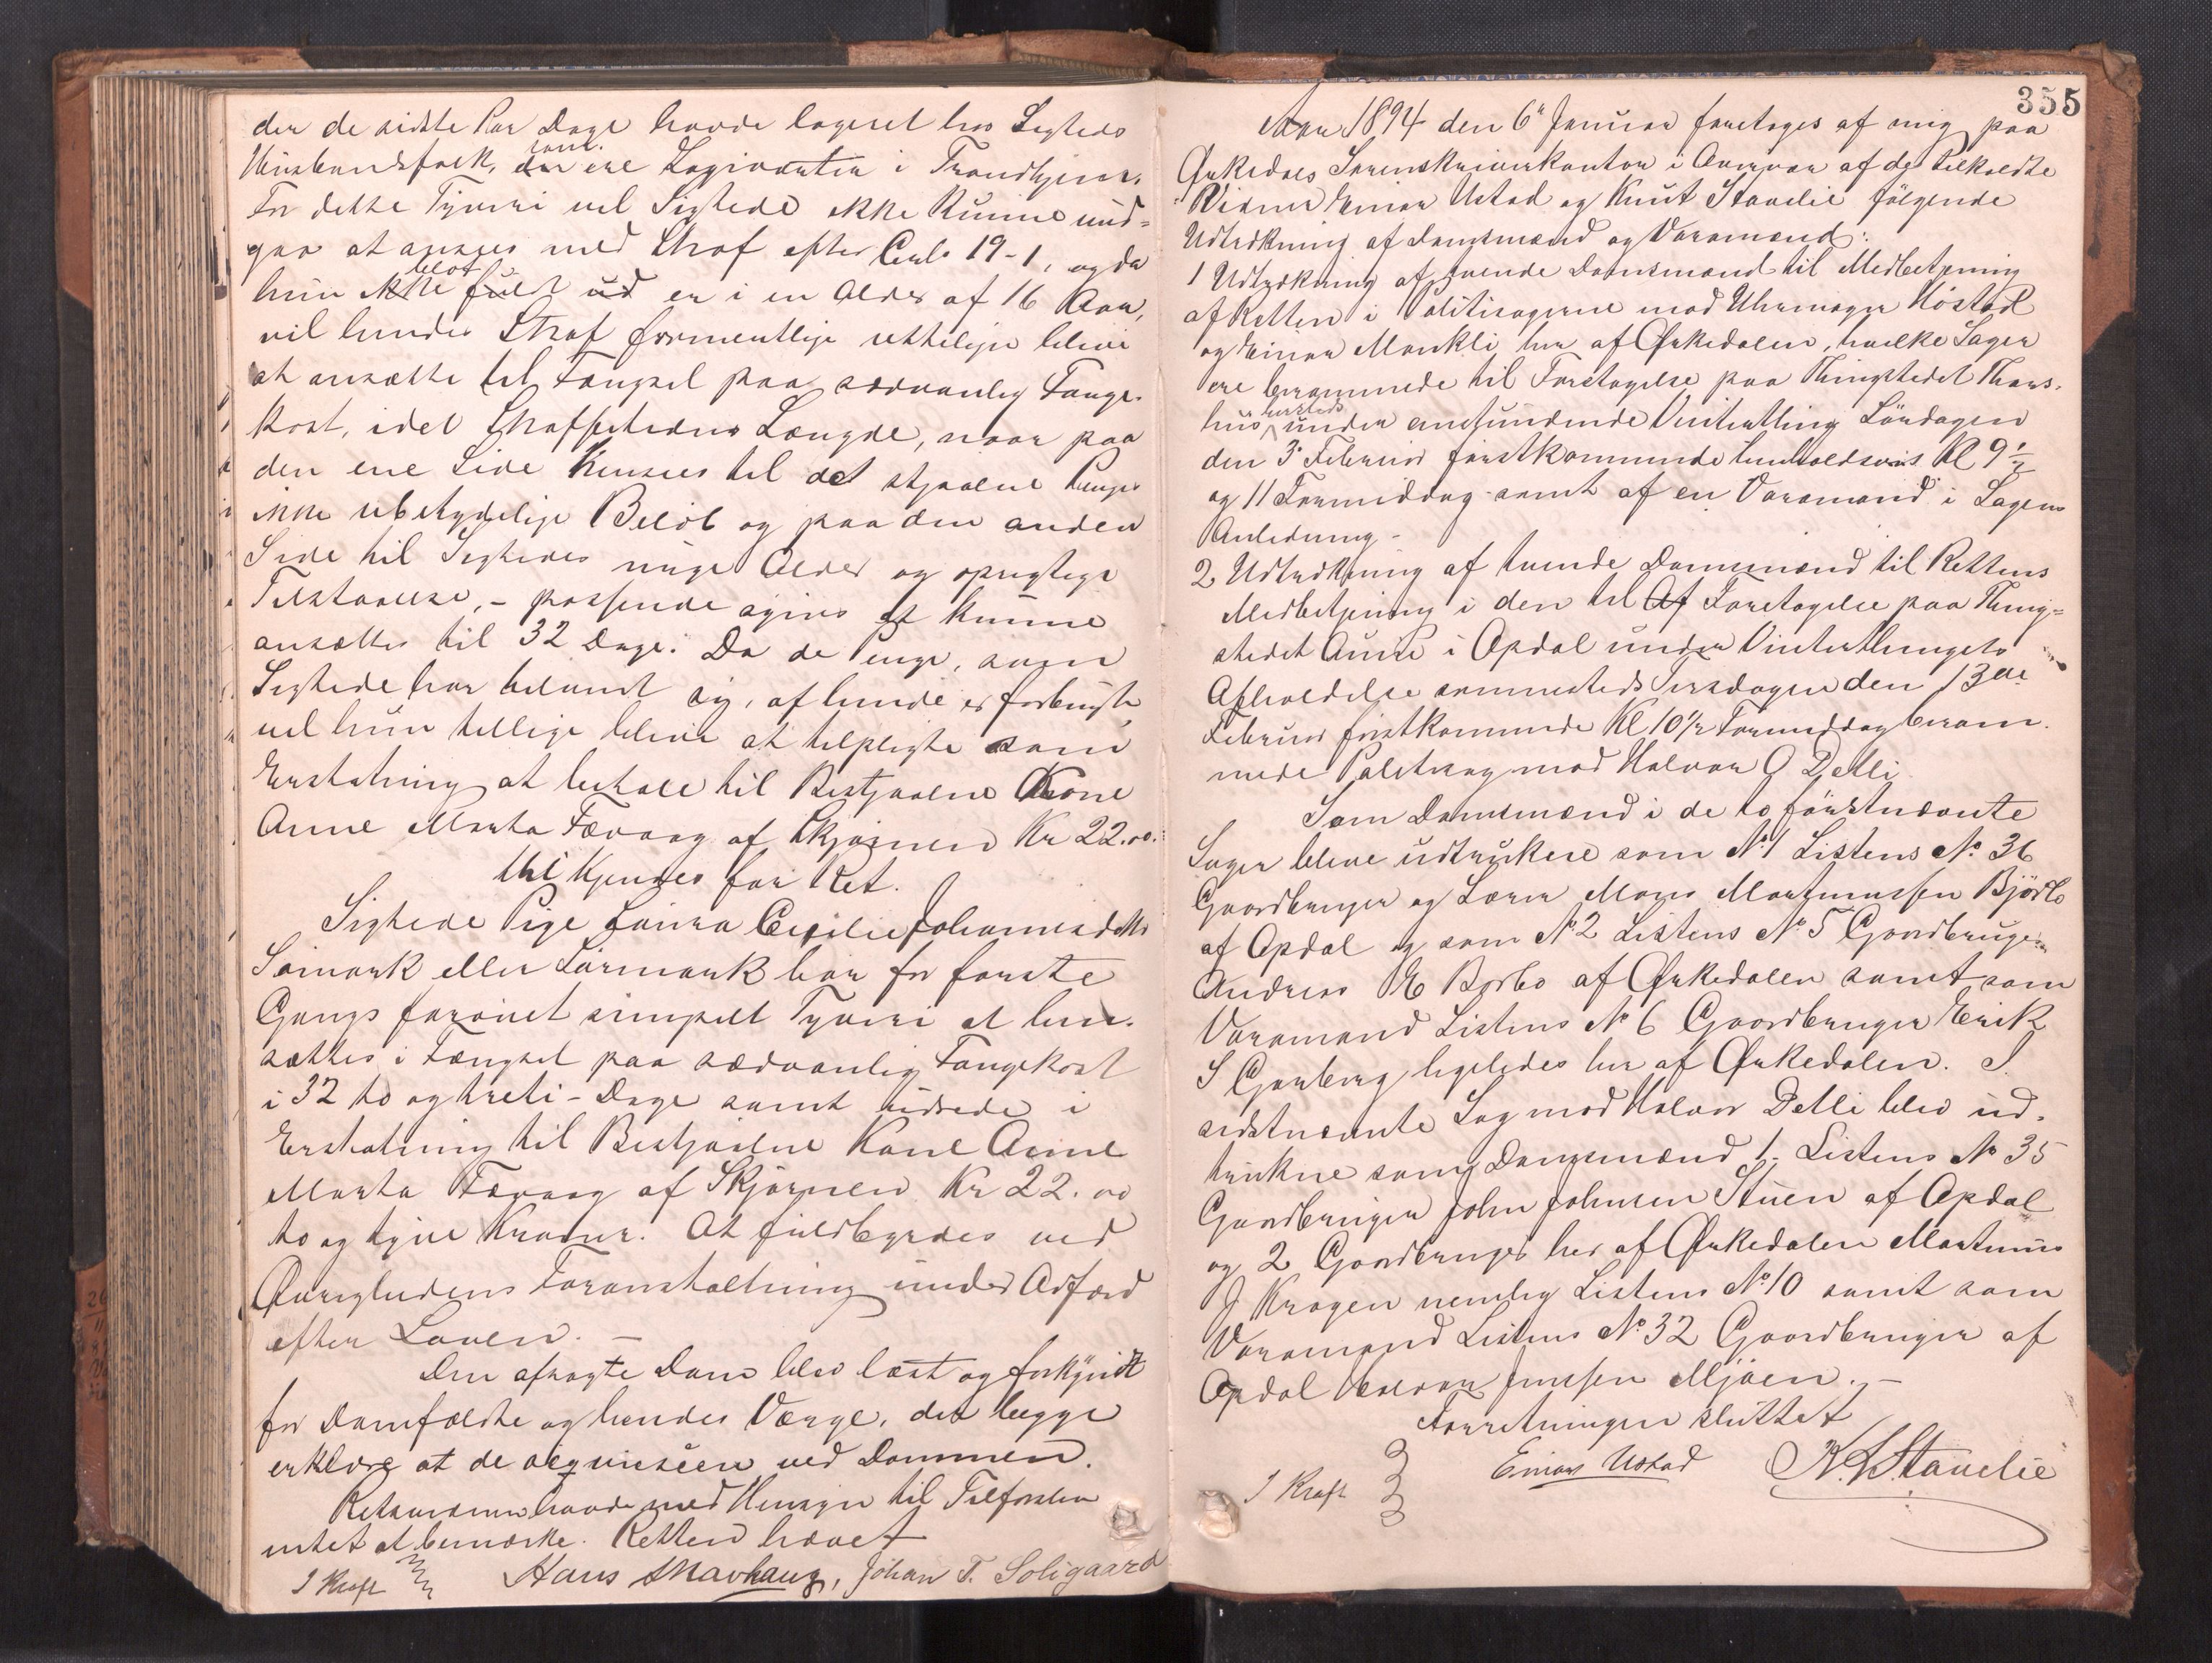 der de sidste Par Dage havde logeret hos Sigtedes
Huusbondsfolk, som ere Logiværter i Trondhjem.
For dette Tyveri vil Sigtede ikke kunne und-
gaa at ansees med Straf efter Crwl. 19-1, og da
hun blot er i en Alder af 16 Aar,
vil hendes Straf formentlige rettelige blive
at ansætte til Fængsel paa sædvanlig Fange-
kost, idet Straffetidens Længde, naar paa
den ene Side henses til det stjaalne Penges
ikke ubetydelige Beløb og paa den anden
Side til Sigtedes unge Alder og oprigtige
Tilstaaelse, - passende synes at kunne
ansættes til 32 Dage. Da de Penge, som
Sigtede har tilvendt sig, af hende er forbrugte,
vil hun tillige blive at tilpligte som
Erstatning at betale til Bestjaalne Kone
Anne Marta Fævaag af Skjørnen Kr 22.00.
thi kjendes for Ret.
Sigtede Pige Laura Cecilie Johannesdatter
Sømark eller Lørmark bør for første
Gangs forøvet simpelt Tyveri at hen-
sættes i Fængsel paa sædvanlig Fangekost
i 32 to og treti - Dage samt udrede i
Erstatning til Bestjaalne Kone Anne
Marta Fævaag af Skjørnen Kr 22.00
to og tyve Kroner. At fuldbyrdes ved
Øvrighedens Foranstaltning under Adfærd
efter Loven. -
Den afsagte Dom blev læst og forkyndt
for Domfældte og hendes Værge, der begge
erklære at de acquiescere ved Dommen.
Retsvidnerne havde med Hensyn til Tilførslen
intet at bemærke. Retten hævet
J Kraft Hans Skavhaug, Johan T. Soligaard
355
Aar 1894 den 6te Januar foretoges af mig paa
Ørkedals Sorenskriverkontor i Overvær af de tilkaldte
Vidner Einar Ustad og Knut Stavelie følgende
Udtrækning af Domsmænd og Varamænd:
1 Udtrækning af tvende Domsmænd til Medbetjening
af Retten i Politisagerne mod Uhrmager Høstad
og Einar Markli her af Ørkedalen, hvilke Sager
ere berammede til Foretagelse paa Thingstedet Thams-
hus hersteds under anstundende Vinterthing Lørdagen
den 3die Februar førstkommende henholdsvis Kl 9½
og 11 Formiddag - samt af en Varamand i Sagens
Anledning -
2 Udtrækning af tvende Domsmænd til Rettens
Medbetjening i den til Af Foretagelse paa Thing-
stedet Aune i Opdal under Vinterthingets
Afholdelse sammesteds Tirsdagen den 13de
Februar førstkommende Kl. 10½ Formiddag beram-
mede Politisag mod Halvor O Detli.
Som Domsmænd i de to førstnævnte
Sager bleve udtrukne som No 1 Listens No 36
Gaardbruger og Lærer Mons Martinussen Bjørbo
af Opdal og som No 2 Listens No 5 Gaardbruger
Andreas E Borbo af Ørkedalen samt som
Varamand Listens No 6 Gaardbruger Erik
S Garberg ligeledes her af Ørkedalen. I
sidstnævnte Sag mod Halvor Detli blev ud-
trukne som Domsmænd 1. Listens No 35
Gaardbruger John Johnsen Stuen af Opdal
og 2 Gaardbruger her af Ørkedalen Martinus
J Krogen nemlig Listens No 10 samt som
Varamand Listens No 32 Gaardbruger af
Opdal Halvor Jensen Mjøen. -
Forretningen sluttet
J Kraft Einar Ustad K. L. Stavelie